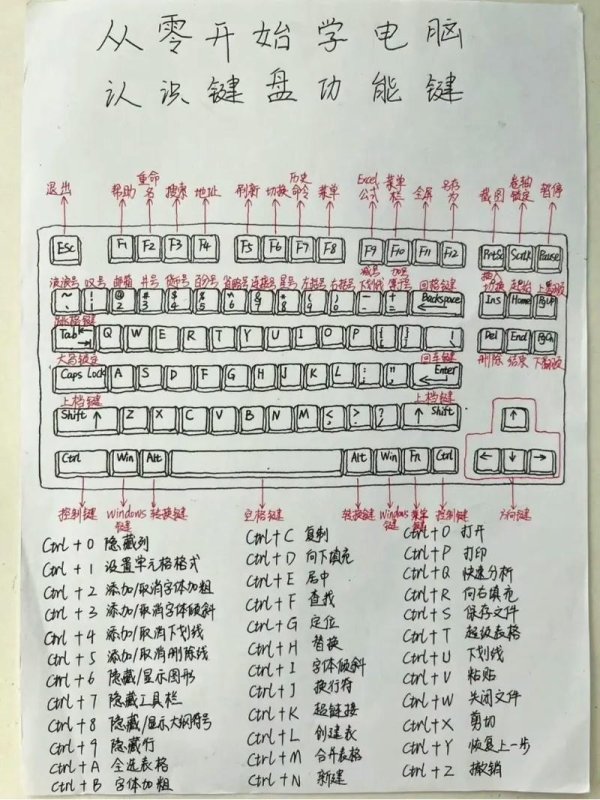 从零开始学电脑
认识键盘功能键
退出 帮助 重命名 搜索 地址 刷新 切换 历史命令 菜单 Excel公式 菜单栏 全屏 另存为 截图 卷轴锁定 暂停
Esc F1 F2 F3 F4 F5 F6 F7 F8 F9 F10 F11 F12 PrtSc ScrLk Pause
波浪号 叹号 邮箱 井号 货币号 百分号 省略号 连接号 星号 左括号 右括号 减号下划线 加号等于号 回格键 插入切换 起始 上翻页
~ ` ! 1 @ 2 # 3 $ 4 % 5 ^ 6 & 7 * 8 ( 9 ) 0 — - + = Backspace Ins Home PgUp
跳格键
Tab Q W E R T Y U I O P { [ } ] | \ Del End PgDn
大写锁定 回车键 删除 结束 下翻页
Caps Lock A S D F G H J K L : ; " ' Enter
上档键 上档键
Shift ↑ Z X C V B N M < , > . ? / ↑ Shift ↑
Ctrl Win Alt Alt Win Fn Ctrl ← ↓ →
控制键 Windows键 转换键 空格键 转换键 Windows键 菜单键 控制键 方向键
Ctrl + 0 隐藏列
Ctrl + 1 设置单元格格式
Ctrl + 2 添加/取消字体加粗
Ctrl + 3 添加/取消字体倾斜
Ctrl + 4 添加/取消下划线
Ctrl + 5 添加/取消删除线
Ctrl + 6 隐藏/显示图形
Ctrl + 7 隐藏工具栏
Ctrl + 8 隐藏/显示大纲符号
Ctrl + 9 隐藏行
Ctrl + A 全选表格
Ctrl + B 字体加粗
Ctrl + C 复制
Ctrl + D 向下填充
Ctrl + E 居中
Ctrl + F 查找
Ctrl + G 定位
Ctrl + H 替换
Ctrl + I 字体倾斜
Ctrl + J 换行符
Ctrl + K 超链接
Ctrl + L 创建表
Ctrl + M 合并表格
Ctrl + N 新建
Ctrl + O 打开
Ctrl + P 打印
Ctrl + Q 快速分析
Ctrl + R 向右填充
Ctrl + S 保存文件
Ctrl + T 超级表格
Ctrl + U 下划线
Ctrl + V 粘贴
Ctrl + W 关闭文件
Ctrl + X 剪切
Ctrl + Y 恢复上一步
Ctrl + Z 撤销